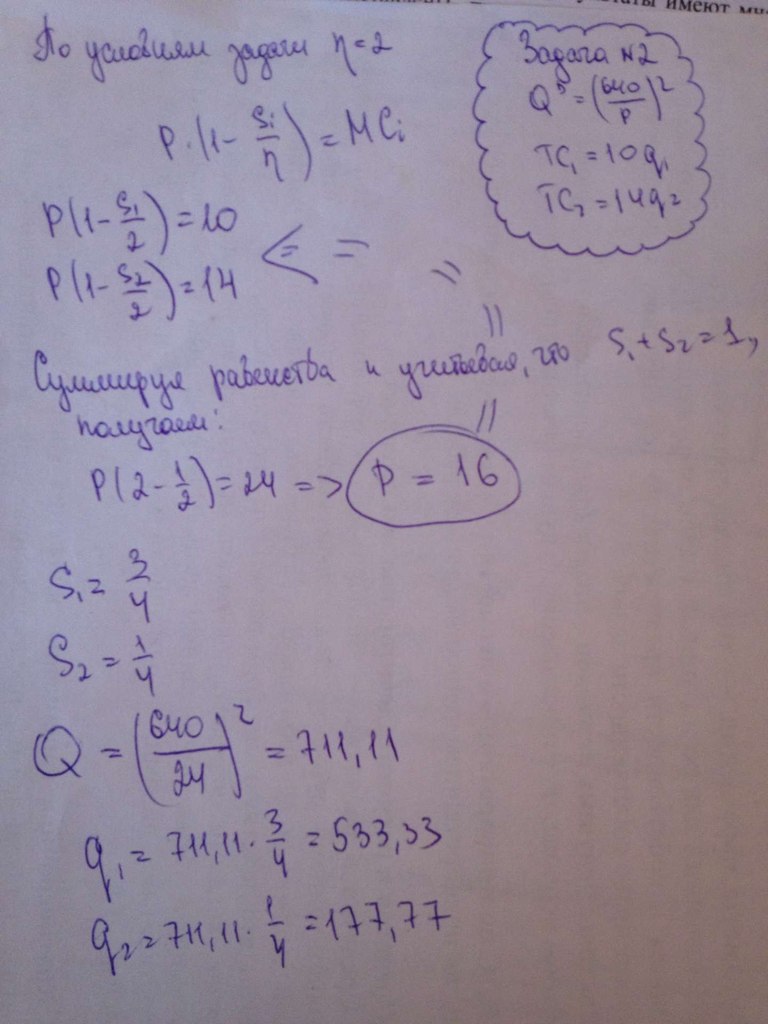 По условиям задачи η=2
Задача №2
Q^D = (640/P)^2
TC₁ = 10q₁
TC₂ = 14q₂
P·(1 - Sᵢ/η) = MCᵢ
P(1 - S₁/2) = 10
P(1 - S₂/2) = 14
Суммируя равенства и учитывая, что S₁ + S₂ = 1,
получаем:
P(2 - 1/2) = 24 => P = 16
S₁ = 3/4
S₂ = 1/4
Q = (640/24)^2 = 711,11
q₁ = 711,11 · 3/4 = 533,33
q₂ = 711,11 · 1/4 = 177,77